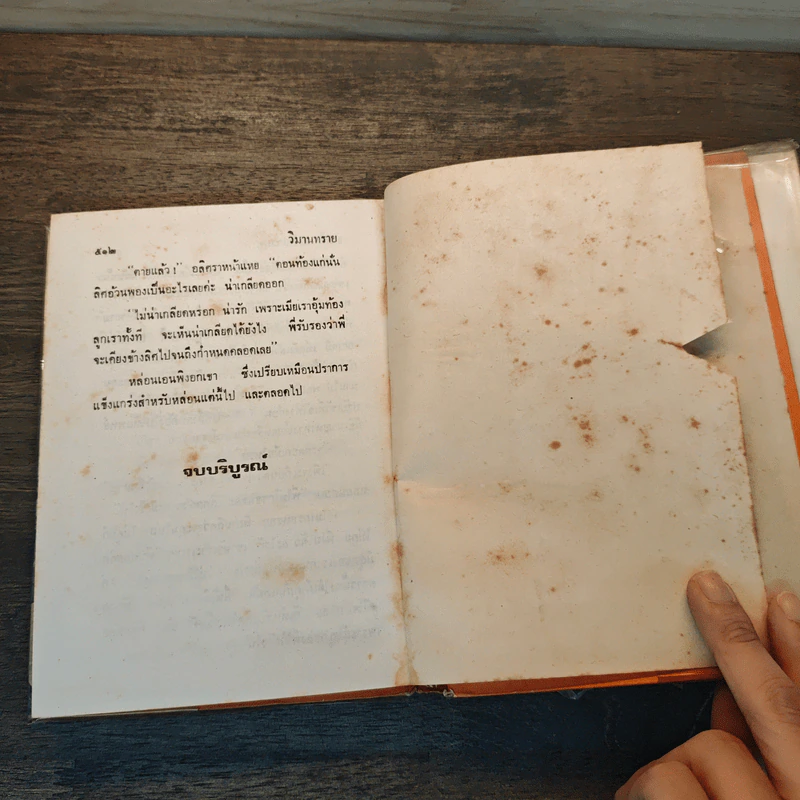 ๕๑๒ วิมานทราย
"ตายแล้ว !" อลิศราหน้าแหย "ตอนท้องแก่นั้น
ลิศอ้วนพองเป็นอะไรเลยค่ะ น่าเกลียดออก
"ไม่น่าเกลียดหรอก น่ารัก เพราะเมียเราอุ้มท้อง
ลูกเราทั้งที จะเห็นน่าเกลียดได้ยังไง พี่รับรองว่าพี่
จะเคียงข้างลิศไปจนถึงกำหนดคลอดเลย"
หล่อนเอนพิงอกเขา ซึ่งเปรียบเหมือนปราการ
แข็งแกร่งสำหรับหล่อนแต่นี้ไป และตลอดไป
จบบริบูรณ์